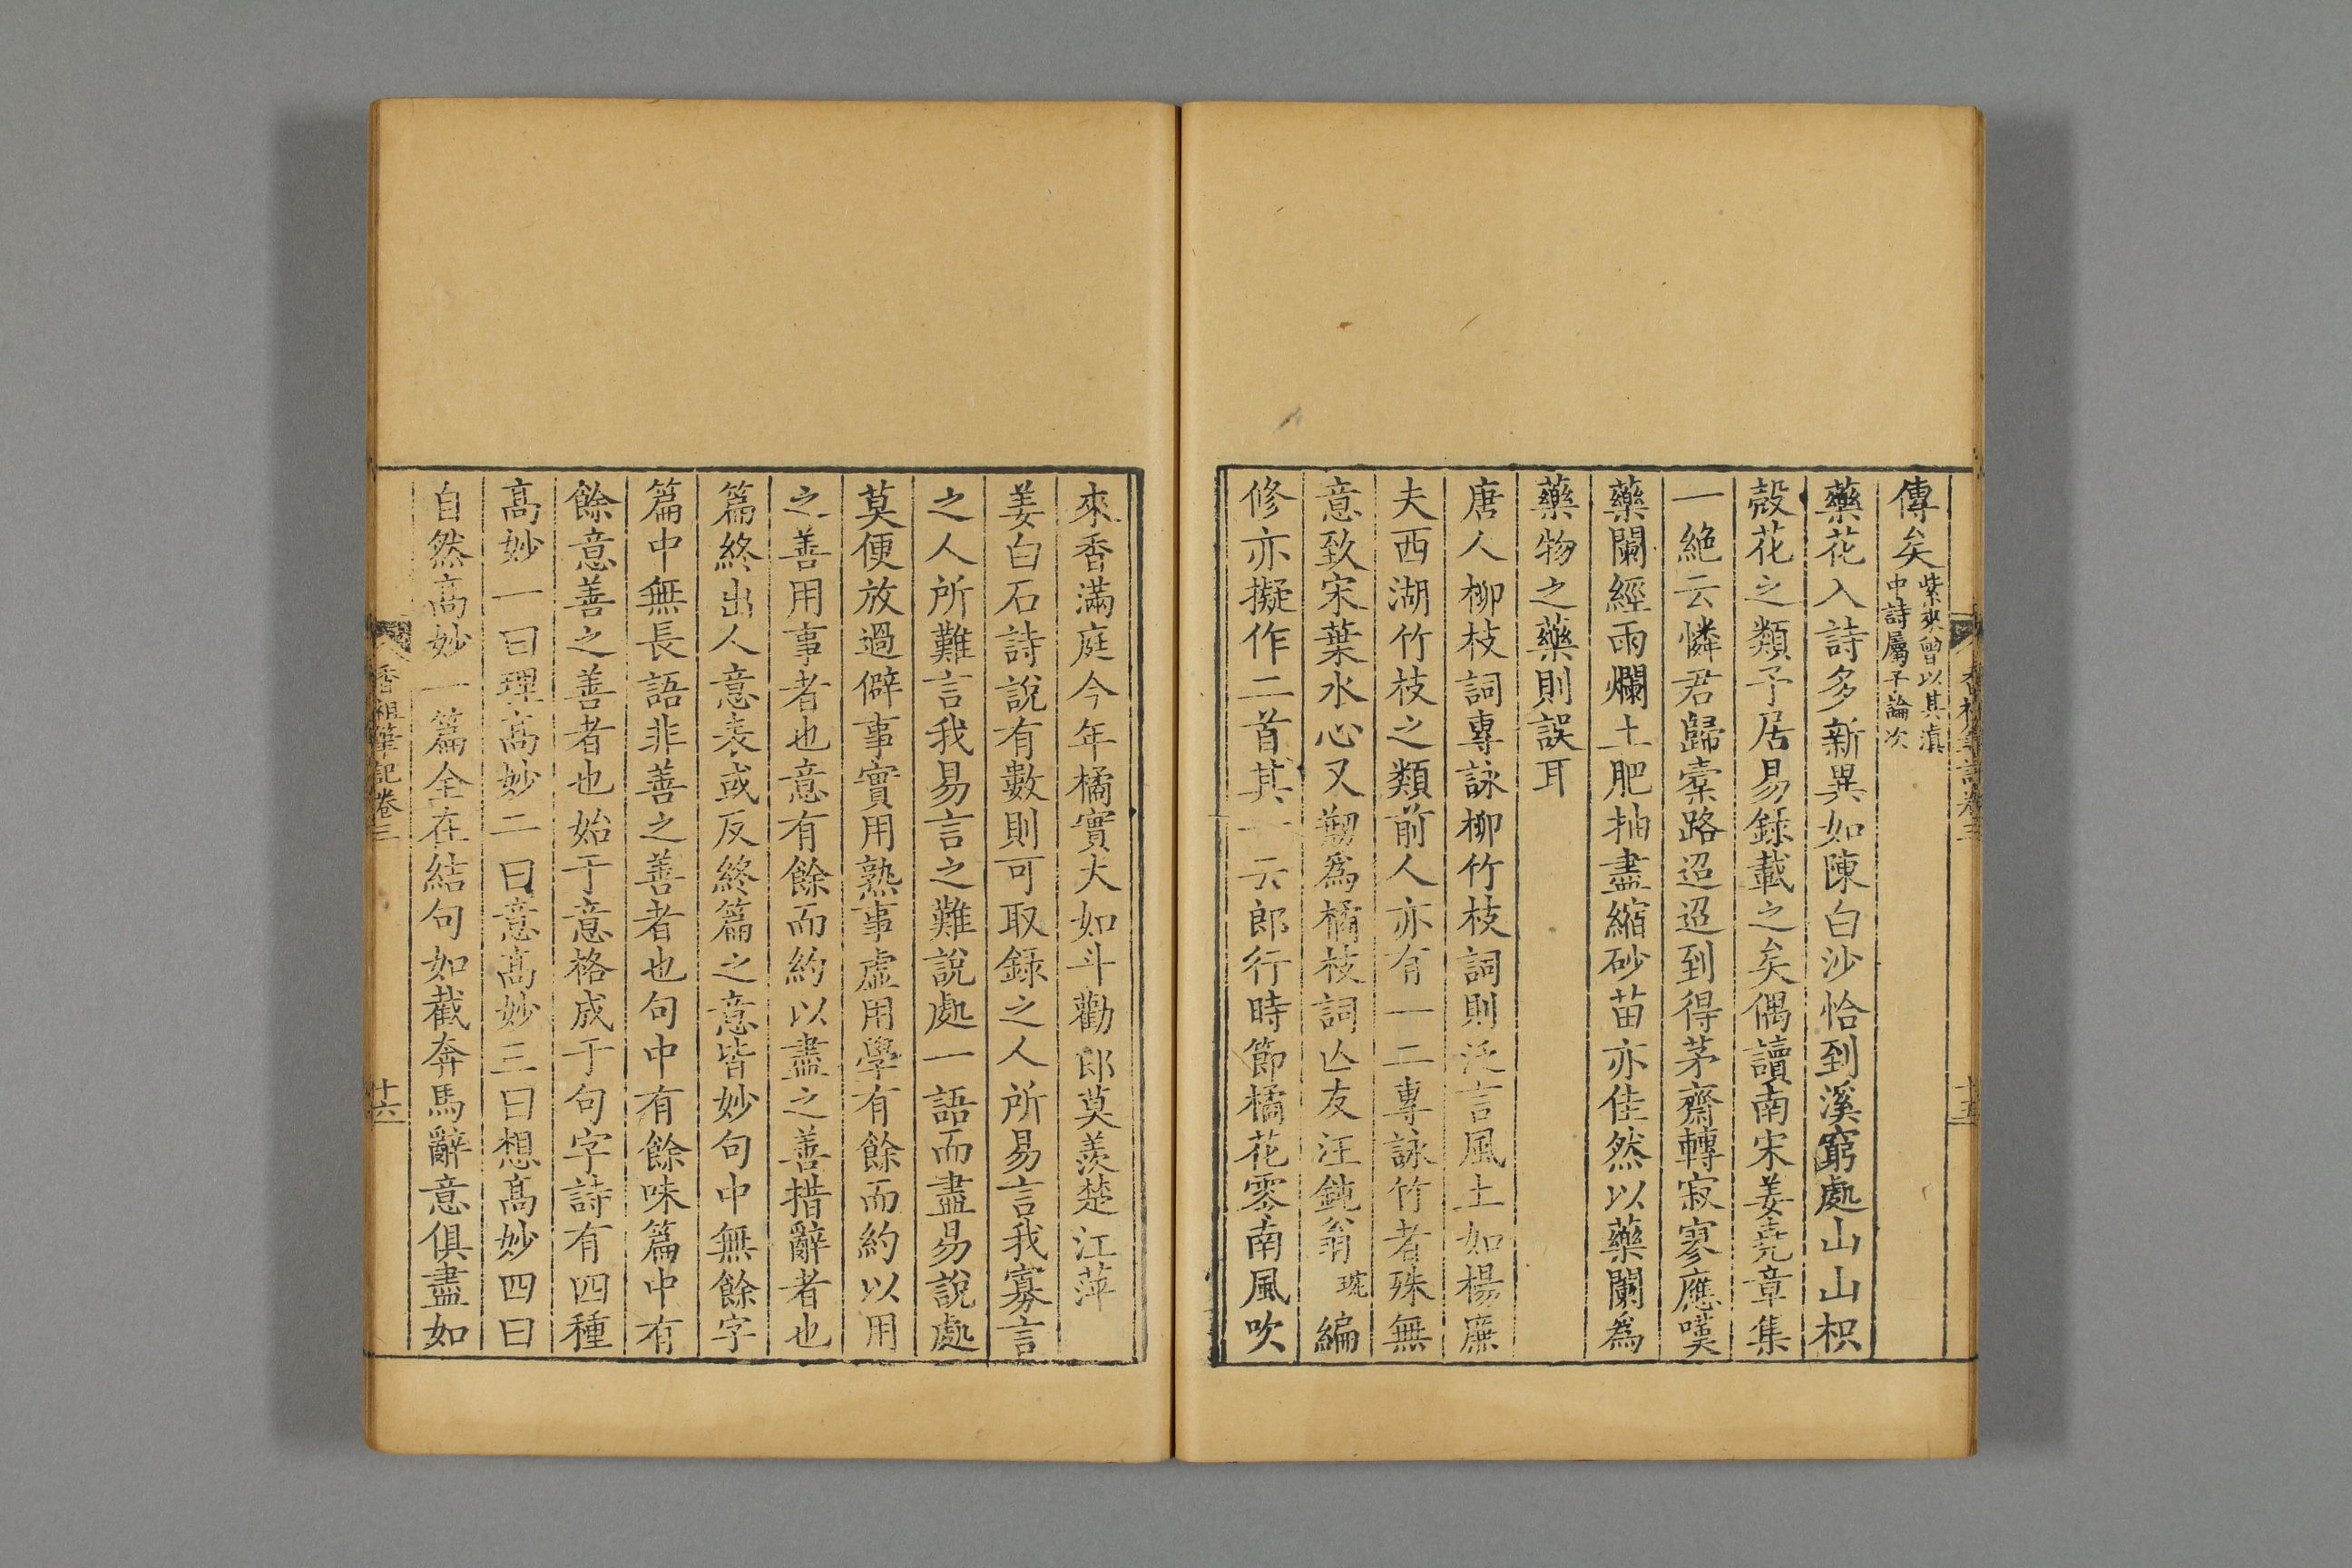 傳矣紫來曾以其滇中詩屬予論次
藥花入詩多新異如陳白沙恰到溪窮處山山枳
殼花之類予居易録載之矣偶讀南宋姜堯章集
一絶云憐君歸橐路迢迢到得茅齋轉寂寥應嘆
藥闌經雨爛土肥抽盡縮砂苗亦佳然以藥闌爲
藥物之藥則誤耳
唐人柳枝詞專詠柳竹枝詞則泛言風土如楊廉
夫西湖竹枝之類前人亦有一二專詠竹者殊無
意致宋葉水心又剏爲橘枝詞亾友汪鈍翁琬編
修亦擬作二首其一云郎行時節橘花零南風吹
香祖筆記卷三
十五
來香滿庭今年橘實大如斗勸郎莫羨楚江萍
姜白石詩說有數則可取録之人所易言我寡言
之人所難言我易言之難說處一語而盡易說處
莫便放過僻事實用熟事虛用學有餘而約以用
之善用事者也意有餘而約以盡之善措辭者也
篇終出人意表或反終篇之意皆妙句中無餘字
篇中無長語非善之善者也句中有餘味篇中有
餘意善之善者也始于意格成于句字詩有四種
高妙一曰理高妙二曰意高妙三曰想高妙四曰
自然高妙一篇全在結句如截奔馬辭意俱盡如
香祖筆記卷三
十六